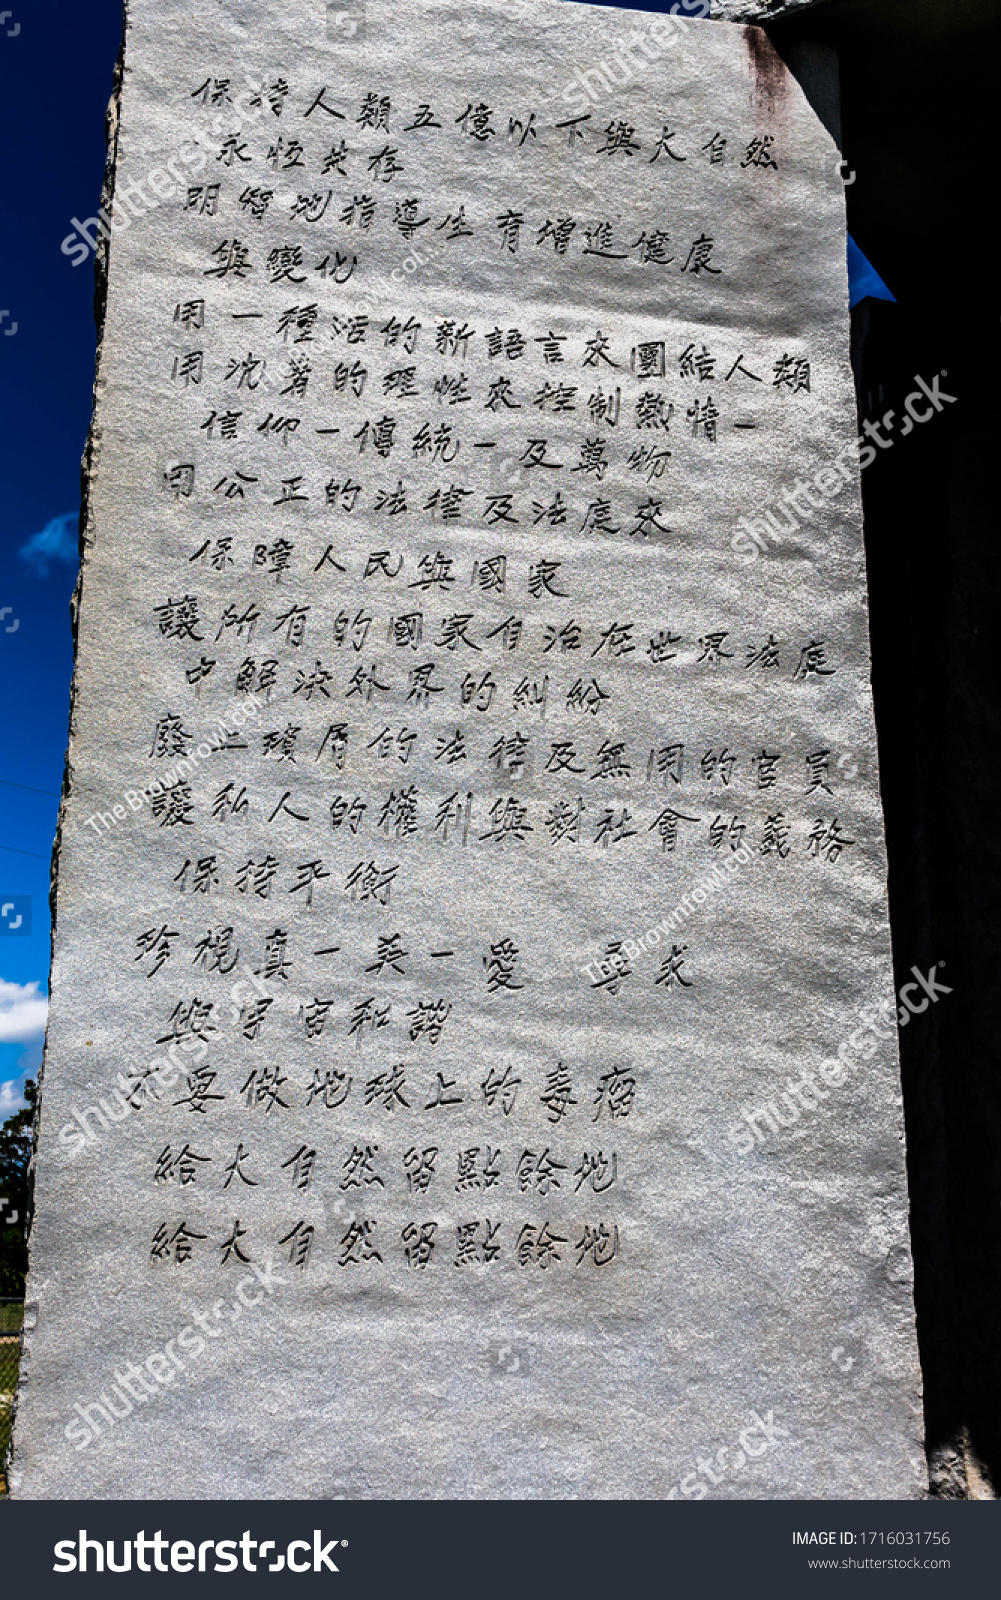 保持人類五億以下與大自然
永恆共存
明智地指導生育增進健康
與變化
用一種活的新語言來團結人類
用沈著的理性來控制熱情一
信仰一傳統一及萬物
用公正的法律及法庭來
保障人民與國家
讓所有的國家自治在世界法庭
中解決外界的糾紛
廢止瑣屑的法律及無用的官員
讓私人的權利與對社會的義務
保持平衡
珍視真一美一愛 尋求
與宇宙和諧
不要做地球上的毒瘤
給大自然留點餘地
給大自然留點餘地
shutterstock
TheBrownfowl.col...
shutterstock
IMAGE ID: 1716031756
www.shutterstock.com